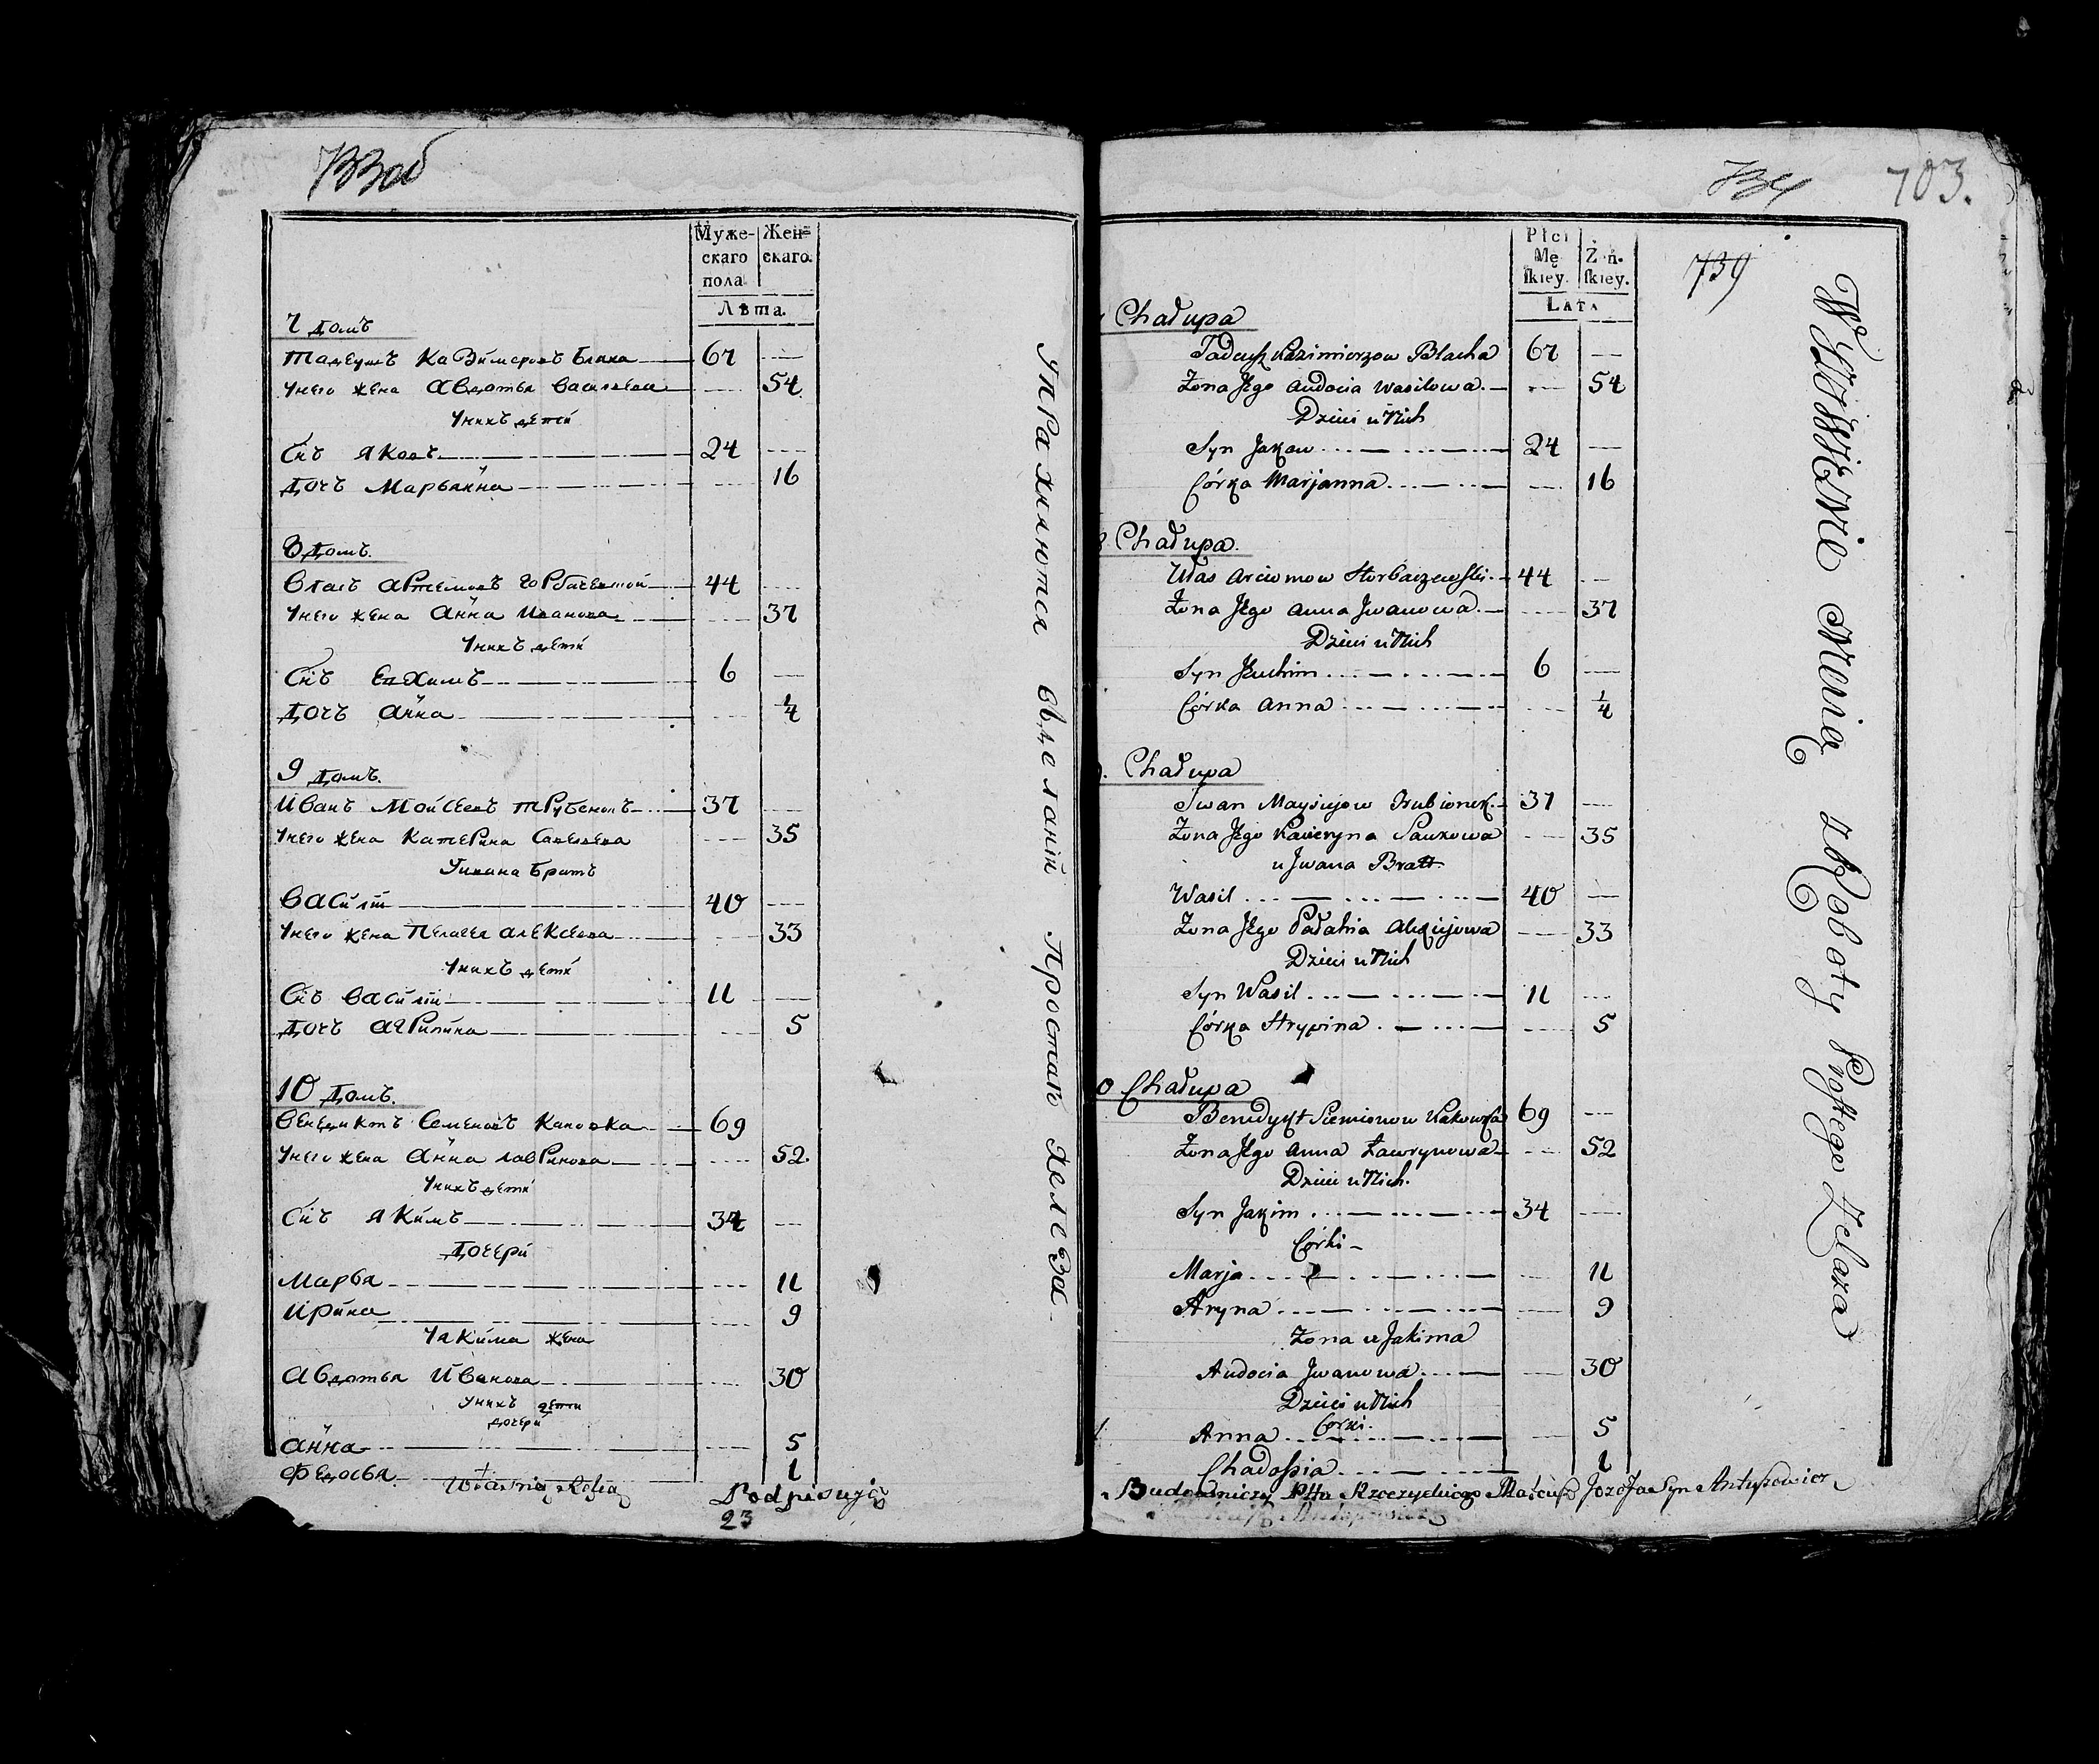 733об
Муже- Жен=
скаго скаго.
пола
Лѣта.
7 домъ
Тадеушъ Казимеровъ Блаха 67 —
Унего жена Авдотья Васильева — 54
Унихъ дети
Сiъ Яковъ 24 —
Дочъ Марьянна — 16
8 Домъ.
Власъ Артемовъ Горбачевской 44 —
Унего жена Анна Иванова — 37
Унихъ дети
Сiъ Евхимъ 6 —
Дочъ Анна — 1/4
9 домъ.
Иванъ Мойсеевъ Трубенокъ 37 —
Унего жена Катерина Савельева — 35
Уивана Братъ
Василiй 40 —
Унего жена Пелагея Алексеева — 33
Унихъ дети
Сiъ Василiй 11 —
Дочъ Агрипина — 5
10 Домъ.
Венедиктъ Семеновъ Каковка 69
Унего жена Анна Лавринова — 52.
Унихъ дети
Сiъ Якимъ 34 —
Дочери
Марья — 11
Ирина — 9
Уякима жена
Авдотья Иванова — 30
Унихъ дети
дочери
Анна — 5
Федосья 1
Własnią Ręką
Podpisuję
23
Упражняются въделанiи Простагъ Железа
734 703.
739
Płci
Mę Żeń.
skiey. skiey.
Lata
Chałupa
Tadeusz Kazimierzow Blacha 67 —
Żona Jego Audocia Wasilowa. — 54
Dzieci u Nich
Syn Jakow 24 —
Córka Marjanna — 16
8 Chałupa.
Ułas Arciomow Horbaczewski 44 —
Żona Jego Anna Jwanowa. — 37
Dzieci u Nich
Syn Jeuchim 6 —
Córka Anna — 1/4
Chałupa
Iwan Maysiejow Trubionek 37 —
Żona Jego Kacieryna Sawkowa — 35
u Jwana Bratt
Wasil 40 —
Żona Jego Pałahia Alexiejowa — 33
Dzieci u Nich
Syn Wasil 11 —
Córka Hrypina — 5
0 Chałupa
Benedykt Siemionow Kakowka 69 —
Żona Jego Anna Ławrynowa — 52
Dzieci u Nich.
Syn Jakim 34 —
Córki
Marja — 11
Aryna — 9
Żona u Jakima
Audocia Jwanowa — 30
Dzieci u Nich
Corki.
Anna — 5
Chadosia 1
Budowniczy Pttu Rzeczyckiego Mateusz Jozefa Syn Antuszewicz